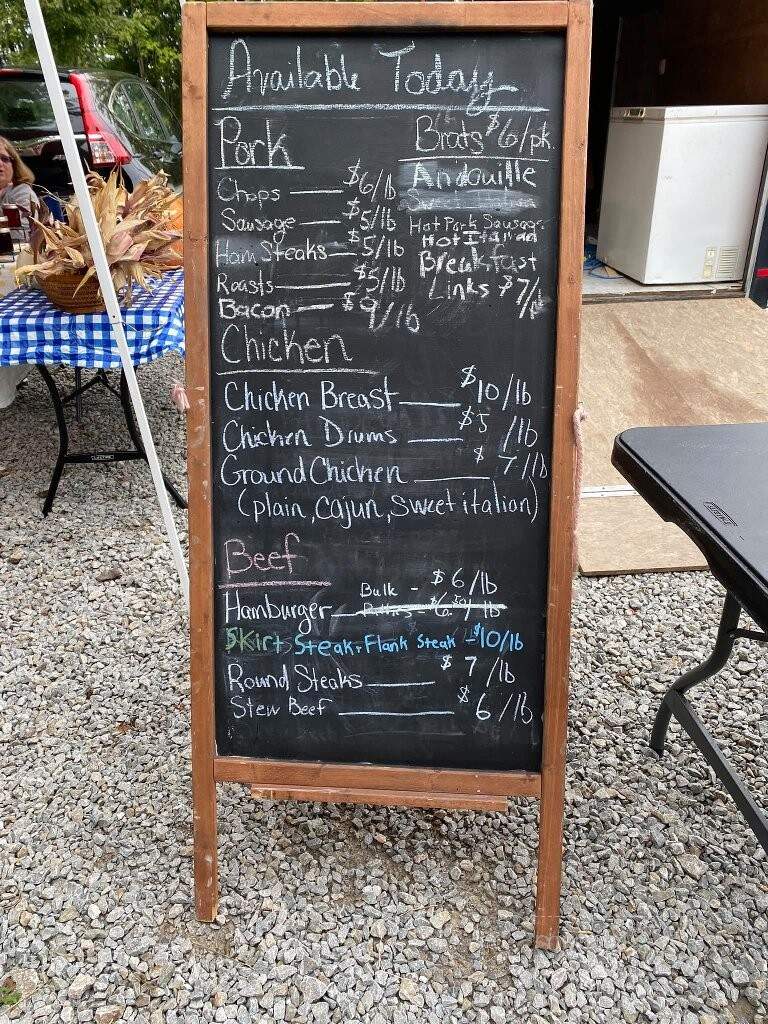 Available Today
Pork
Chops $6/lb
Sausage $5/lb
Ham Steaks $5/lb
Roasts $5/lb
Bacon $9/lb
Brats $6/pk.
Andouille
Hot Pork Sausage
Hot Italian
Breakfast
Links $7/
Chicken
Chicken Breast $10/lb
Chicken Drums $5/lb
Ground Chicken $7/lb
(plain, cajun, sweet italian)
Beef
Bulk - $6/lb
Hamburger
Skirt Steak + Flank Steak - $10/lb
Round Steaks $7/lb
Stew Beef $6/lb